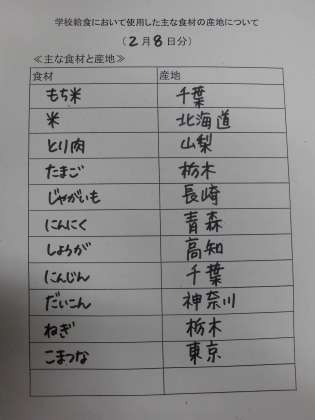 学校給食において使用した主な食材の産地について
(2月8日分)
≪主な食材と産地≫
食材 産地
もち米 千葉
米 北海道
とり肉 山梨
たまご 栃木
じゃがいも 長崎
にんにく 青森
しょうが 高知
にんじん 千葉
だいこん 神奈川
ねぎ 栃木
こまつな 東京